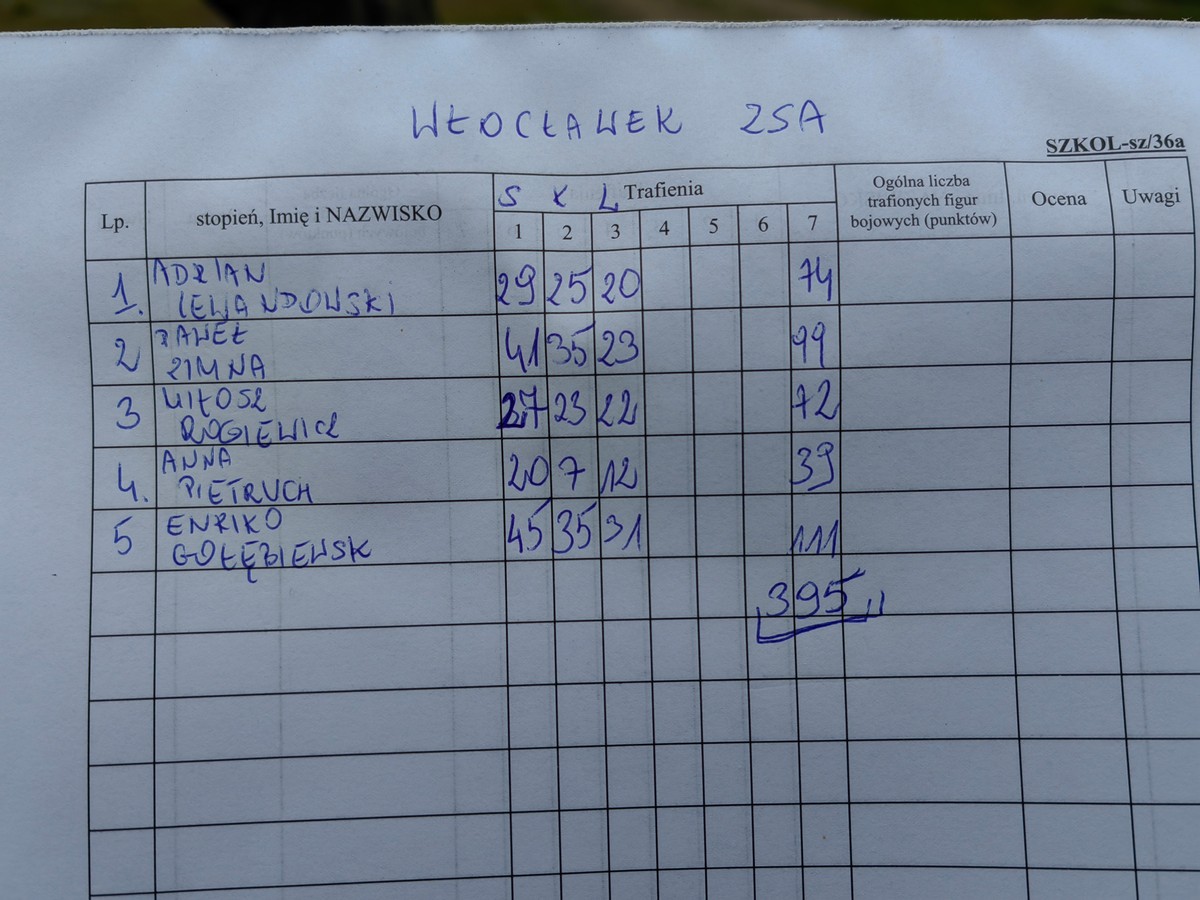 WŁOCŁAWEK ZSA
SZKOL-sz/36a
Lp. stopień, Imię i NAZWISKO S K L Trafienia Ogólna liczba trafionych figur bojowych (punktów) Ocena Uwagi
1 2 3 4 5 6 7
1. ADRIAN LEWANDOWSKI 29 25 20 74
2 PAWEŁ ZIMNA 41 35 23 99
3 MIŁOSZ ROGIEWICZ 27 23 22 72
4. ANNA PIETRUCH 20 7 12 39
5 ENRIKO GOŁĘBIEWSK 45 35 31 111
395